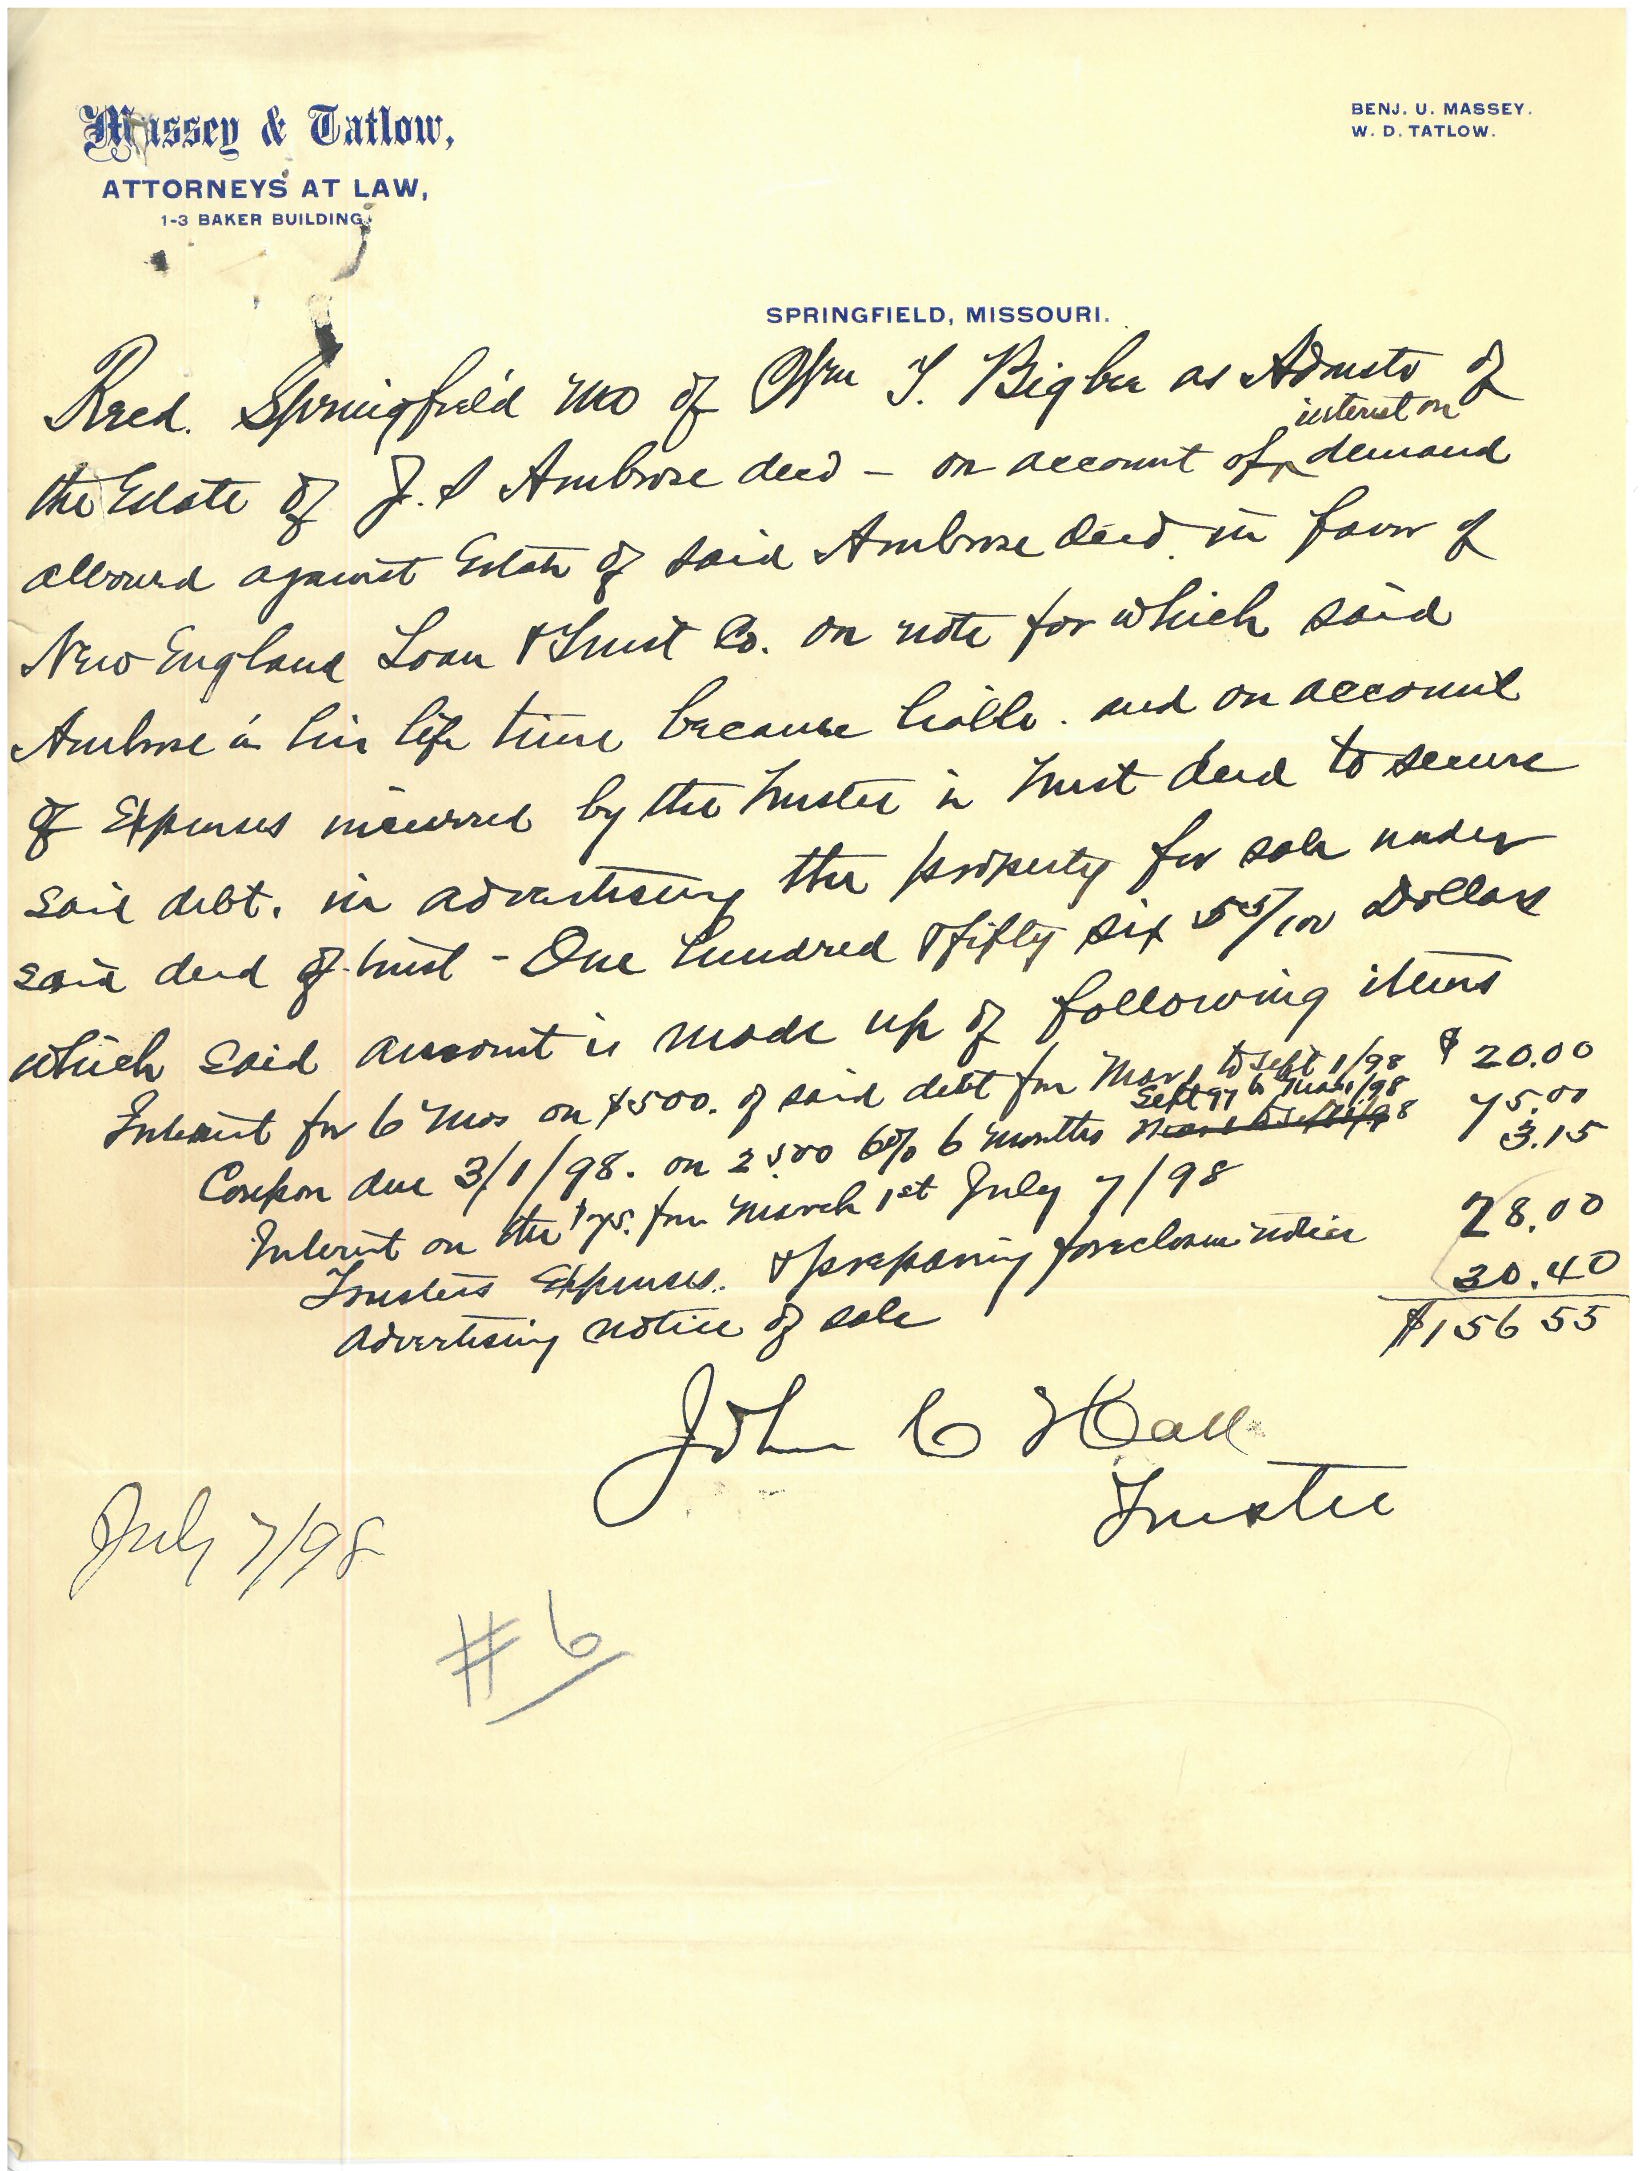 Massey & Tatlow,
ATTORNEYS AT LAW,
1-3 BAKER BUILDING.
BENJ. U. MASSEY.
W. D. TATLOW.
SPRINGFIELD, MISSOURI.
Recd. Springfield Mo of Wm T. Bigbee as Admstr of
interest on
the Estate of J. S Ambrose decd – on account of ‸ demand
allowed against Estate of said Ambrose decd in favor of
New England Loan & Trust Co. on note for which said
Ambrose in his life time became liable. and on account
of Expenses incurred by the Trustee in Trust deed to secure
said debt. in advertising the property for sale under
said deed of trust - One hundred & fifty six 55/100 Dollars
which said account is made up of following items
Interest for 6 Mos on $500. of said debt for Mar 1 to Sept 1/98 $ 20.00
Sept 97 to Mar 1/98
Coupon due 3/1/98. on 2500 6% 6 months 75.00
Interest on the $75. from March 1st July 7/98 3.15
Trustees Expenses. & preparing foreclosure notice 28.00
advertising notice of sale 30.40
$156 55
John C Hall
Trustee
July 7/98
#6